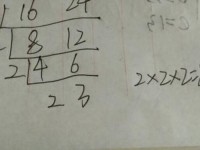 16 24
8 12
2 4 6
2 3
2×2×2=